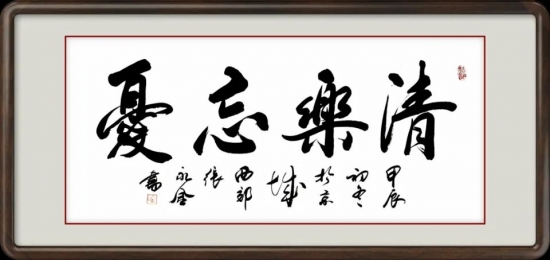 清樂忘憂
甲辰初冬於京城西郊張永金書